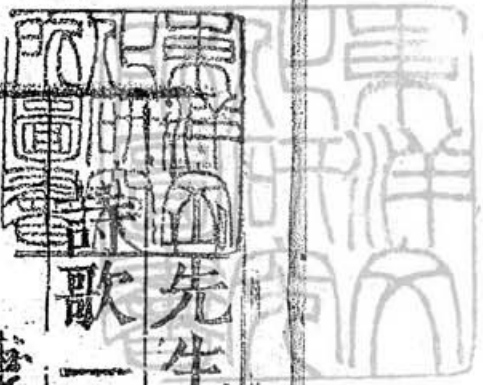 東洋文
化研究
所圖書
先生
詩歌一